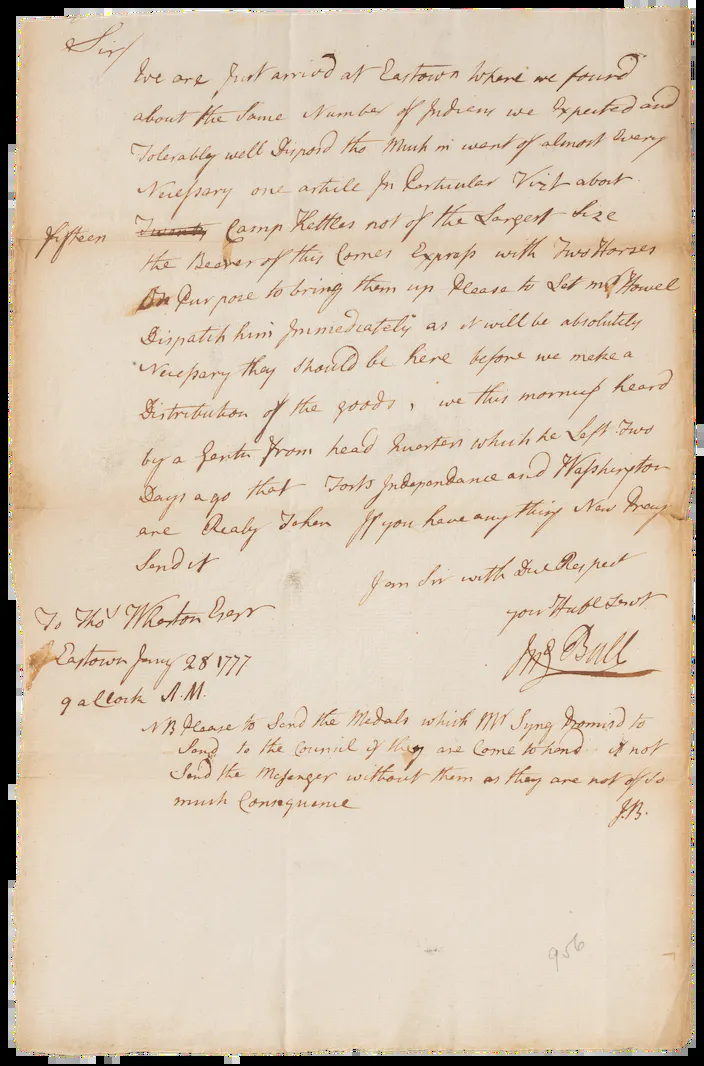 Sir/
We are Just arrivd at Eastown Where we found
about the Same Number of Indiens we Expected and
Tolerably well Disposd tho Much in want of almost Every
Necessary one article In Particular Vizt about
fifteen Twenty Camp Kettles not of the Largest Size
the Bearer of this Comes Express with Two Horses
On Purpose to bring them up Please to Let mr Howel
Dispatch him Immediately as it will be absolutely
Necessary they should be here before we make a
Distribution of the goods, we this morning heard
by a Gentn from head Quarters which he Left Two
Days ago that Forts Independance and Washington
are Realy Taken If you have any thing New Pray
Send it
I am Sir with Due Respect
your Huble Servt
Jno Bull
To Thos Wharton Esqr
Eastown Jany 28 1777
9 a Clock A.M.
NB Please to Send the Medals which Mr Syng Promisd to
Send to the Council if they are Come to hand if not
Send the Messenger without them as they are not of So
much Consequence
J.B.
956